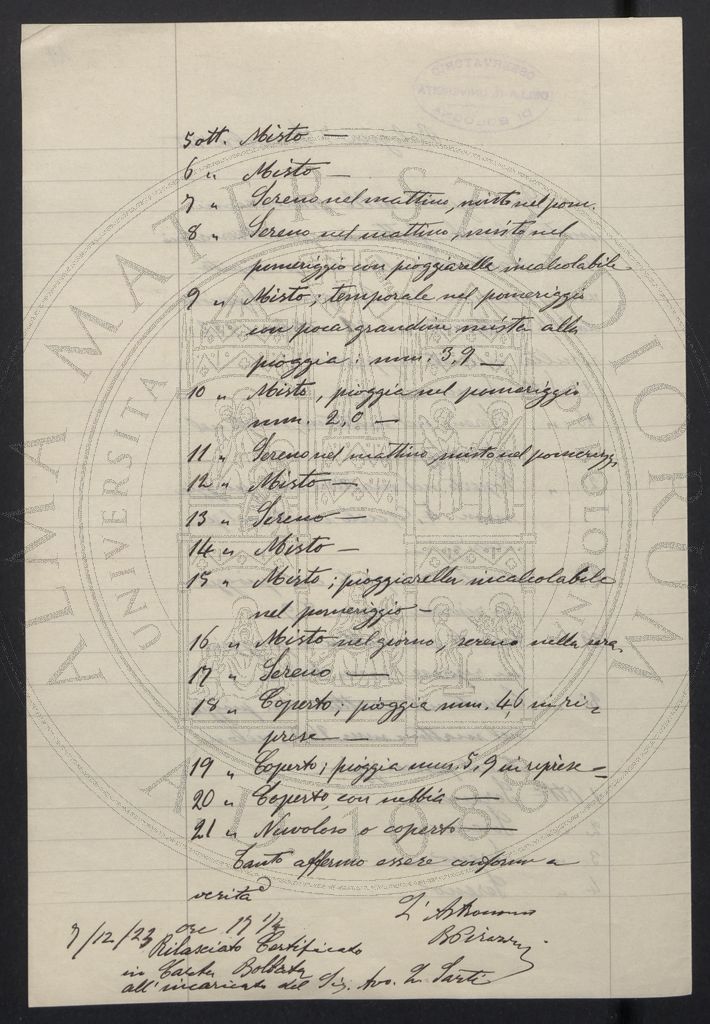 OSSERVATORIO
DELLA R. UNIVERSITÀ
DI BOLOGNA
ALMA MATER STUDIORUM
UNIVERSITÀ DI BOLOGNA
A.D. 1088
5 ott. Misto —
6 " Misto —
7 " Sereno nel mattino, misto nel pom.
8 " Sereno nel mattino, misto nel
pomeriggio con pioggiarella incalcolabile
9 " Misto; temporale nel pomeriggio
con poca grandine mista alla
pioggia: mm. 3,9 —
10 " Misto, pioggia nel pomeriggio
mm. 2,0 —
11 " Sereno nel mattino, misto nel pomerigg.
12 " Misto —
13 " Sereno —
14 " Misto —
15 " Misto; pioggiarella incalcolabile
nel pomeriggio —
16 " Misto nel giorno, sereno nella sera,
17 " Sereno —
18 " Coperto; pioggia mm. 4,6 in ri-
prese —
19 " Coperto; pioggia mm. 5,9 in riprese —
20 " Coperto con nebbia —
21 " Nuvoloso o coperto —
Tanto affermo essere conforme a
verità
L'Astronomo
7/12/23 ore 17 1/2
Rilasciato Certificato
in Carta Bollata
all'incaricato del Sig. Avv. Sarti